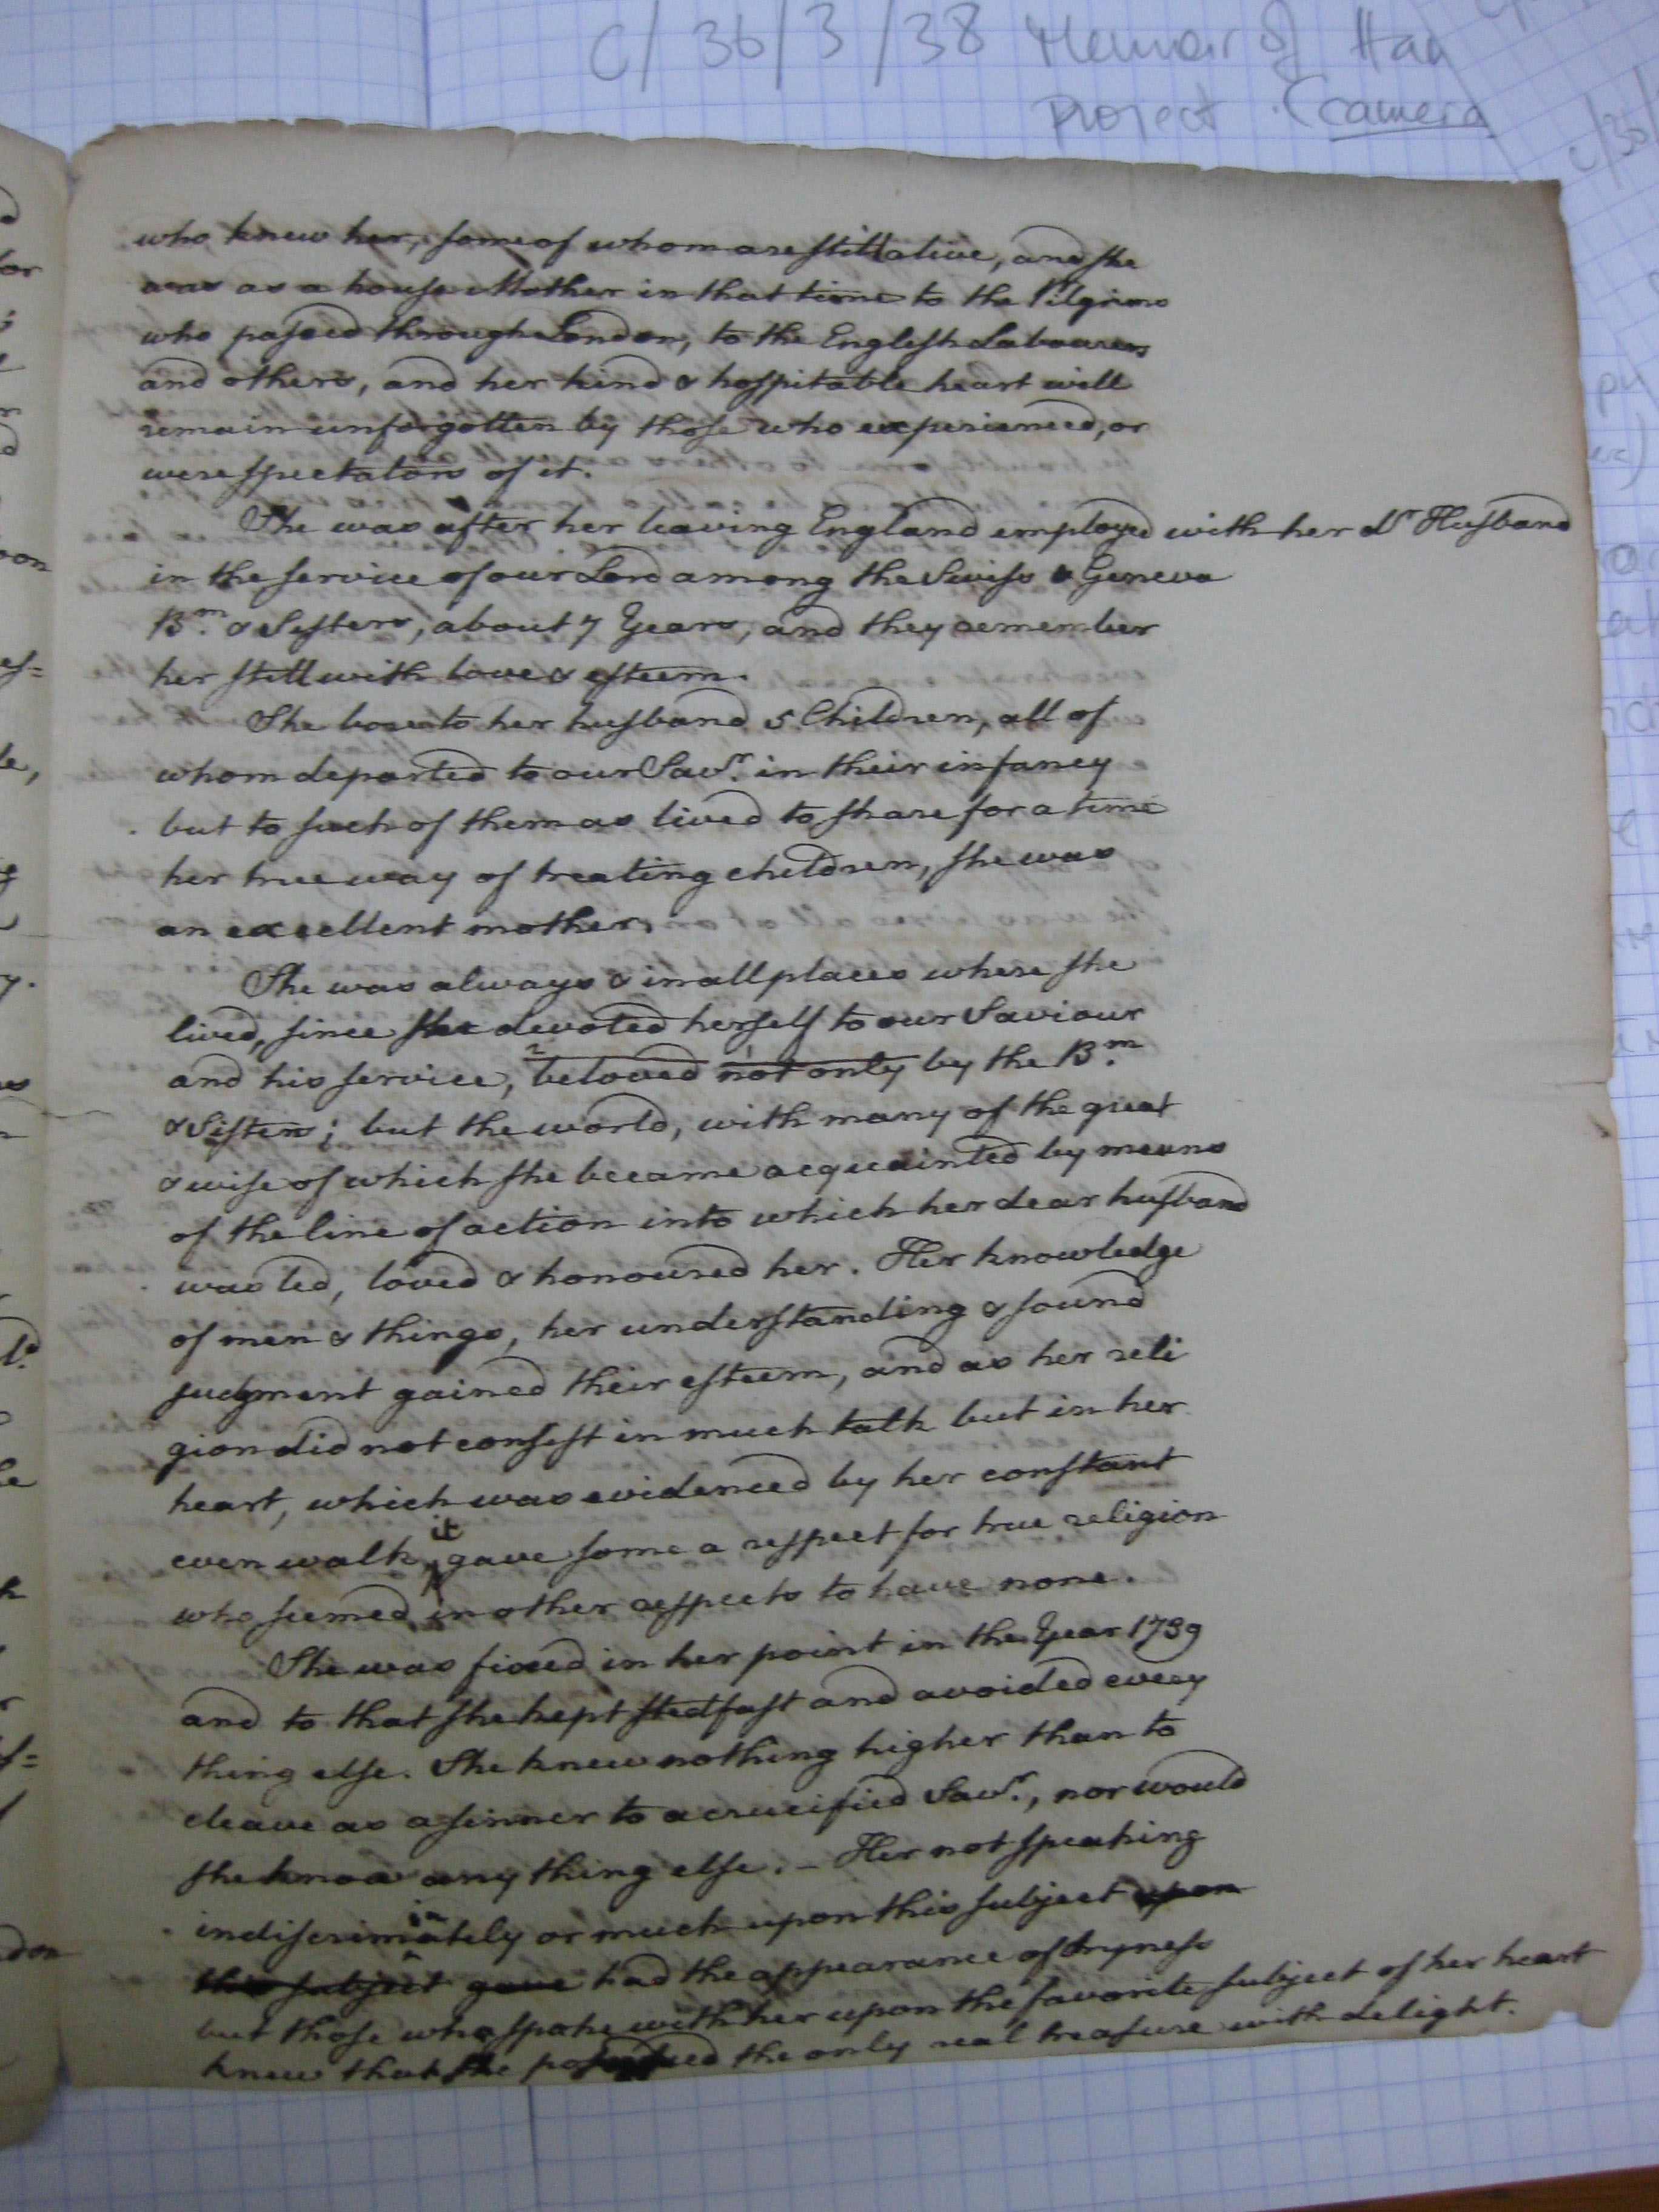 C/36/3/38 Memoir of Han
Project (camera
who knew her, some of whom are still alive, and she
was as a house Mother in that time to the Pilgrims
who passed through London, to the English Labourers
and others, and her kind & hospitable heart will
remain unforgotten by those who experienced, or
were spectators of it.
She was after her leaving England employed with her dr Husband
in the service of our Lord among the Swiss & Geneva
Brn. & Sisters, about 7 Years, and they remember
her still with love & esteem.
She bore to her husband 5 Children, all of
whom departed to our Savr. in their infancy
but to such of them as lived to share for a time
her true way of treating children, she was
an excellent mother.
She was always & in all places where she
lived, since she devoted herself to our Saviour
and his service, 2 beloved 1 not only by the Brn.
& Sisters; but the world, with many of the great
& wise of which she became acquainted by means
of the line of action into which her dear husband
was led, loved & honoured her. Her knowledge
of men & things, her understanding & sound
judgment gained their esteem, and as her reli
gion did not consist in much talk but in her
heart, which was evidenced by her constant
even walk, it gave some a respect for true religion
who seemed in other respects to have none.
She was fixed in her point in the Year 1739
and to that she kept stedfast and avoided every
thing else. She knew nothing higher than to
cleave as a sinner to a crucified Savr., nor would
she know any thing else. – Her not speaking
indiscriminately or much upon this subject upon
this subject gave had the appearance of dryness
but those who spoke with her upon the favorite subject of her heart
knew that she possessed the only real treasure with delight.